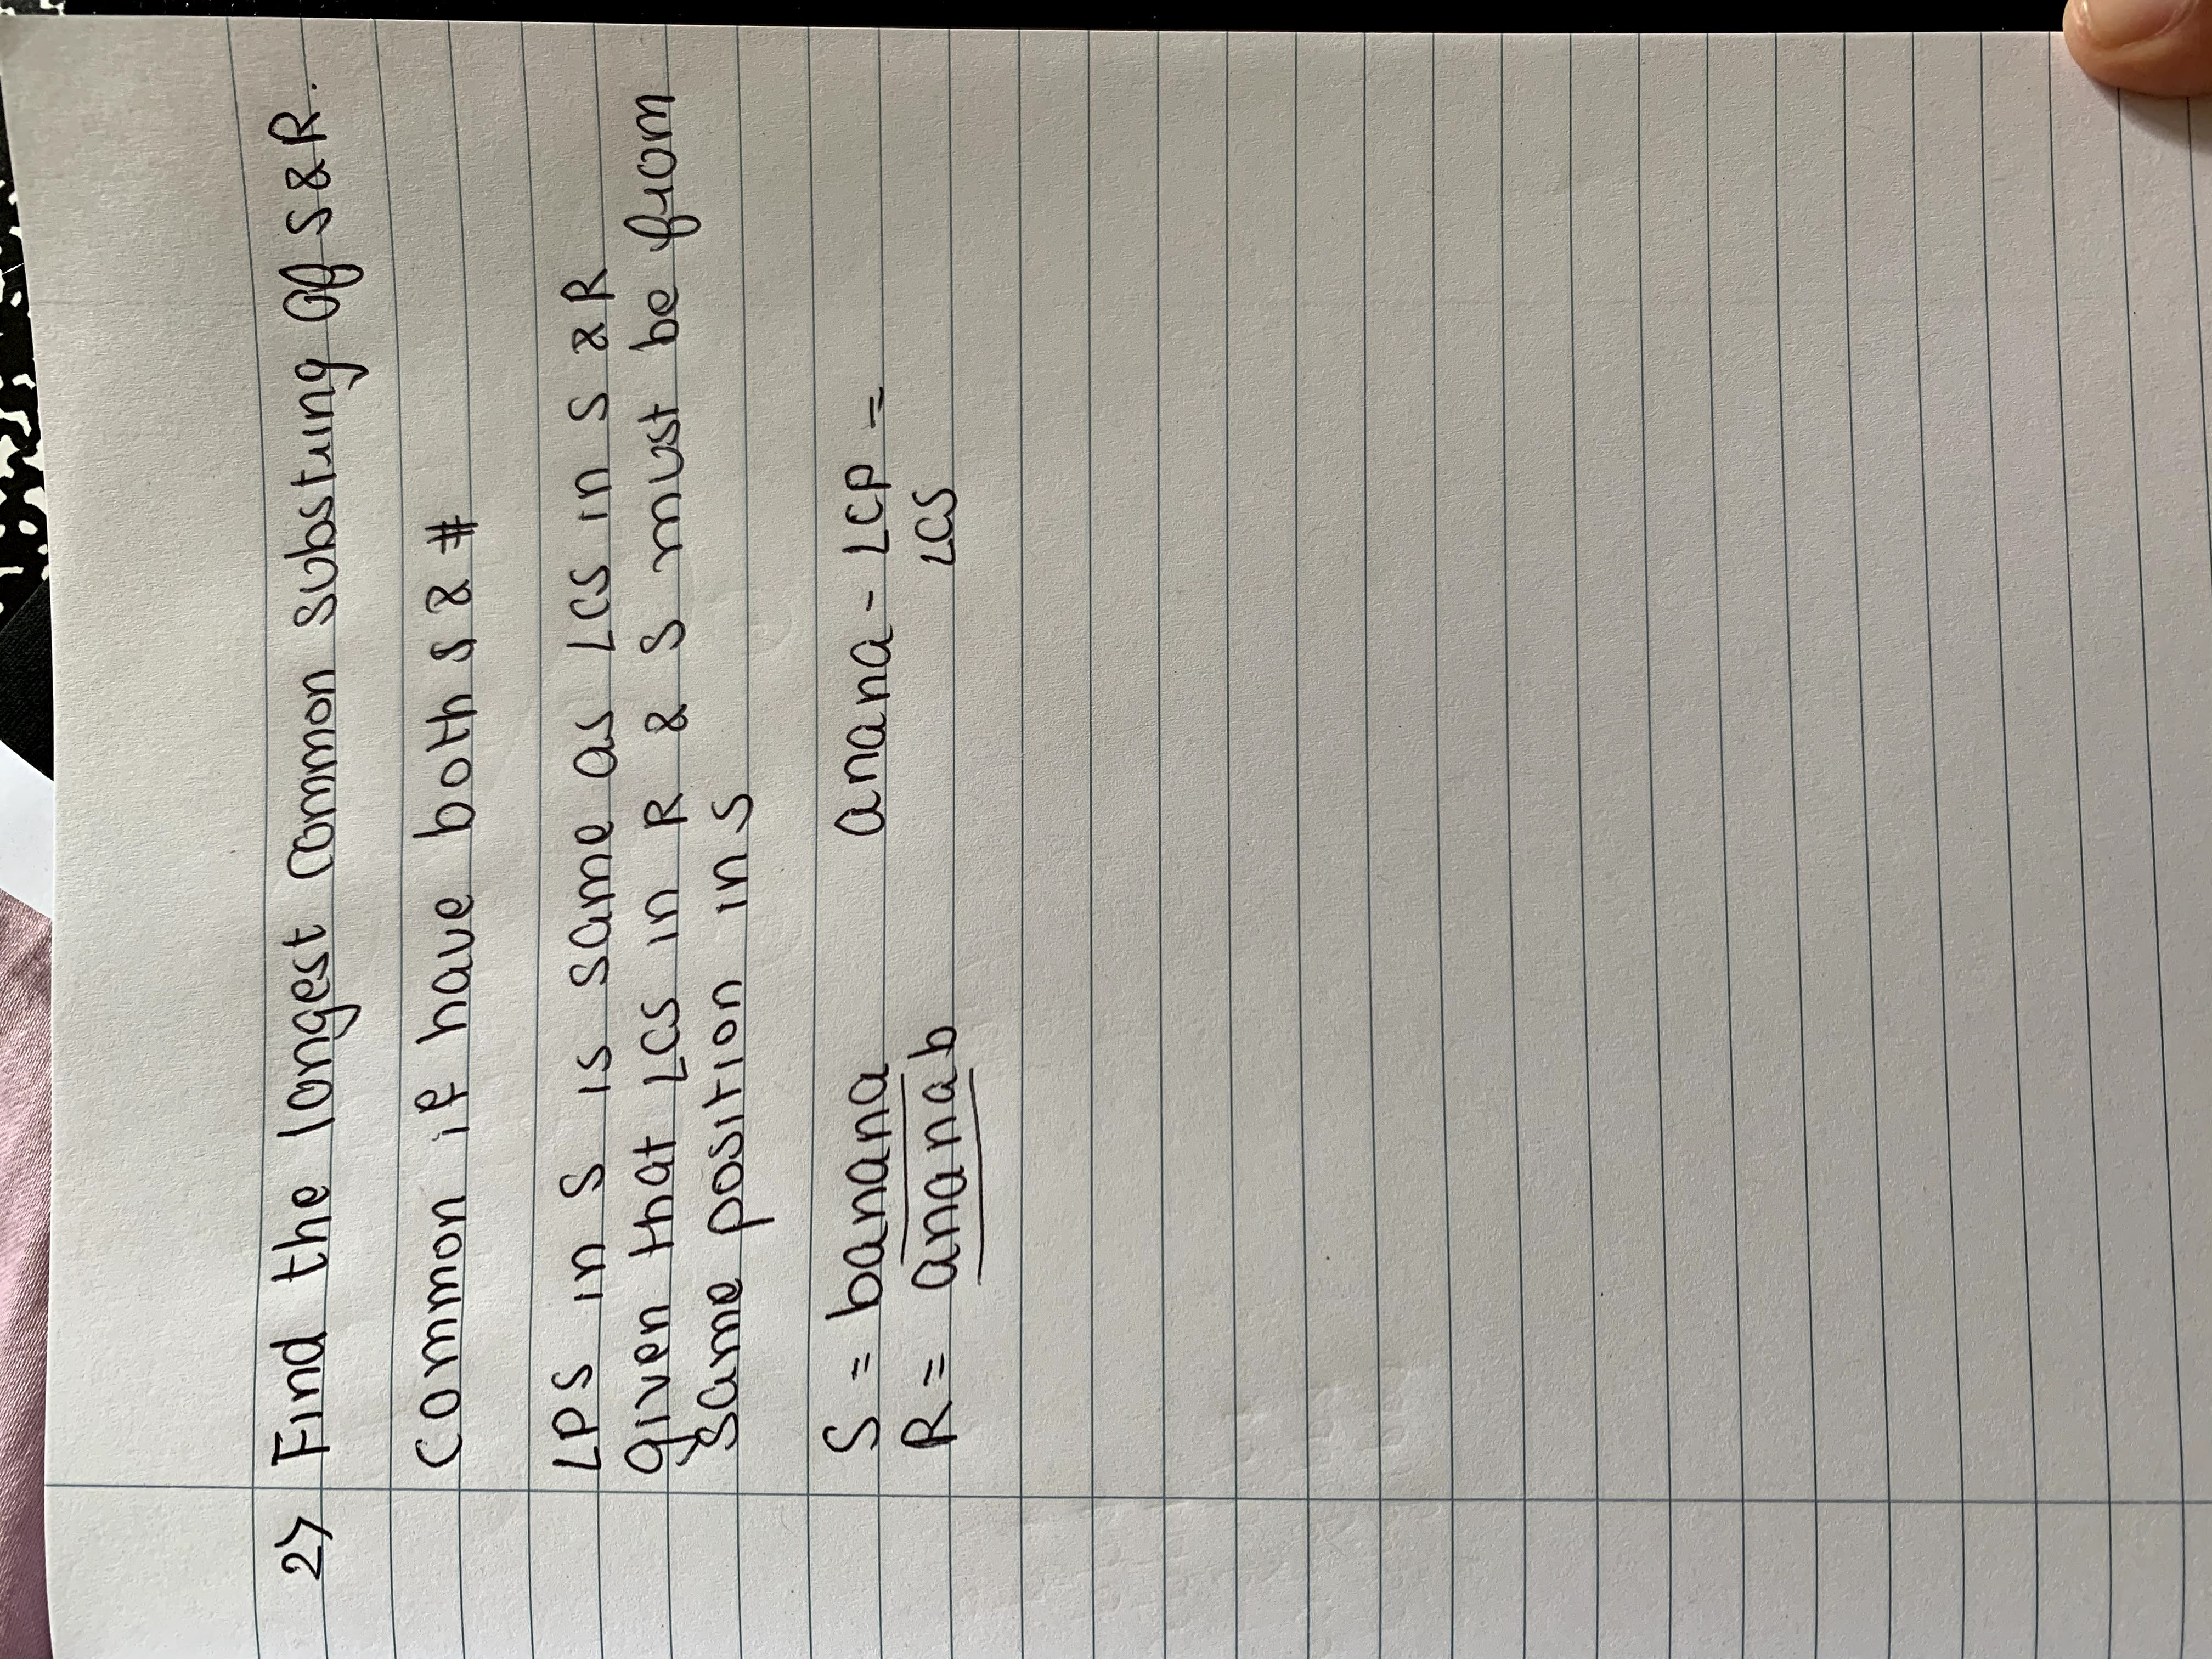 2) Find the longest common substring of S & R.
common if have both $ & #
LPS in S is same as LCS in S & R
given that LCS in R & S must be from
same position in S
S = banana anana - LCP =
R = ananab LCS